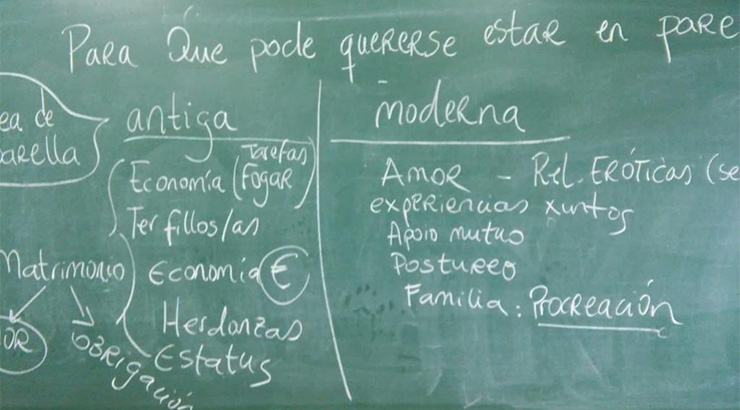 Para Que pode quererse estar en pare
ea de
parella
antiga
Economía (Fogar
Tarefas)
Ter fillos/as
Matrimonio
Economía €
Herdanzas
Estatus
OR
OBRIGACIÓN
moderna
AMOR - Rel. ERÓTICAS (se
experiencias xuntos
Apoio mutuo
Postureo
Familia: Procreación